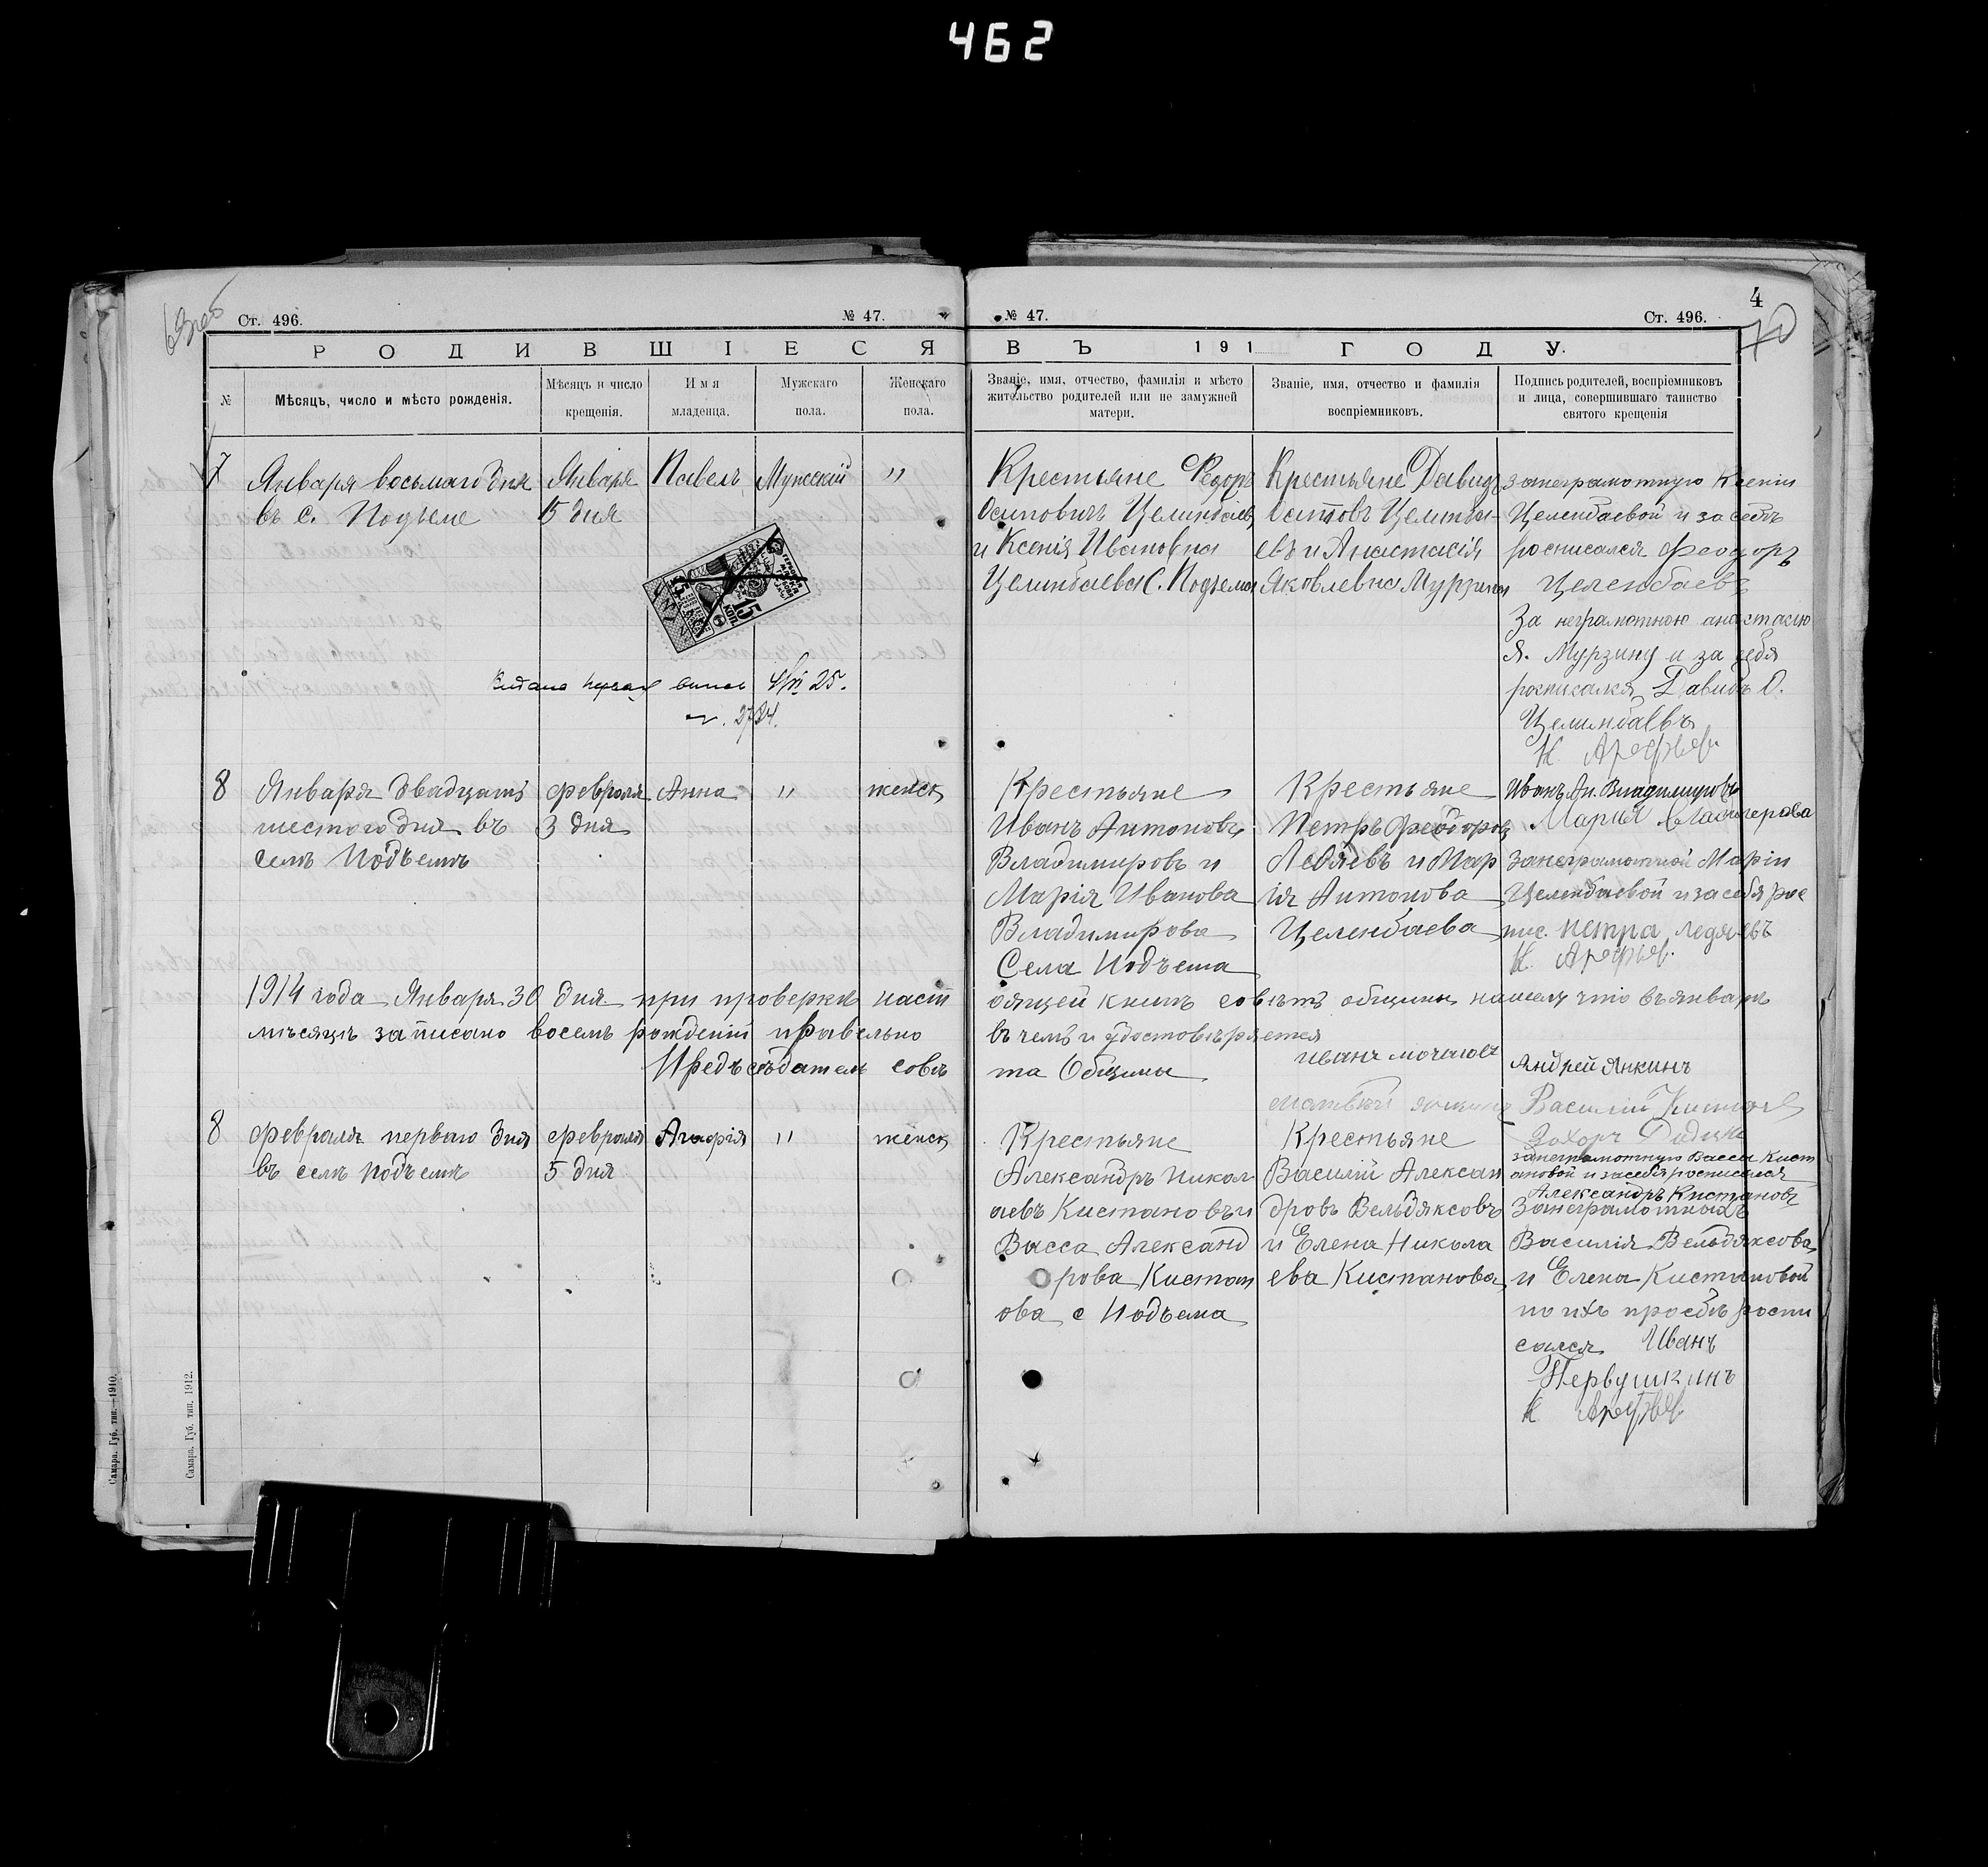 462
4
70
Ст. 496. № 47.
№ 47. Ст. 496.
РОДИВШІЕСЯ ВЪ 191 ГОДУ.
№
Мѣсяцъ, число и мѣсто рожденія.
Мѣсяцъ и число крещенія.
Имя младенца.
Мужскаго пола.
Женскаго пола.
Званіе, имя, отчество, фамилія и мѣсто
жительство родителей или не замужней
матери.
Званіе, имя, отчество и фамилія
воспріемниковъ.
Подпись родителей, воспріемниковъ
и лица, совершившаго таинство
святого крещенія
7
Января восьмаго дня
въ с. Подъеме
Января
5 дня
Павелъ
Мужский
"
15 коп.
4/VI 25.
2734.
Крестьяне Федоръ
Осиповичъ Целинбаевъ
и Ксенія Ивановна
Целинбаева С. Подъема
Крестьяне Давидъ
Осиповъ Целинба-
евъ и Анастасія
Яковлевна Мурзина
занеграмотную Ксенію
Целенбаевой и засебъ
росписался Феодоръ
Целенбаевъ
За неграмотною анастасию
Я. Мурзину и за себя
росписался Давидъ О.
Целинбаевъ
К. Арефьев
8
Января двадцать
шестого дня въ
селѣ Подъемъ
февроля
3 дня
Анна
"
женск
Крестьяне
Иванъ Антоновъ
Владимировъ и
Марія Иванова
Владимирова
Села Подъема
Крестьяне
Петръ Феодоровъ
Ледяевъ и Мар
ія Антонова
Целенбаева
Иванъ Ан. Владимировъ
Мария
занеграмотной Маріи
Целенбаевой и засебя рос
пис. петра ледяевъ
К. Арефьев.
1914 года Января 30 дня при проверкѣ наст оящей книгѣ совѣтъ общины нашелъ что въ январѣ
мѣсяцѣ записано восемь рожденій правельно въ чемъ и удостовѣряется
Предъсѣдатель совѣ та Общины
Андрей Янкинъ
Василій
8
февроля перваго дня
въ селѣ подъемѣ
февроля
5 дня
Агафія
"
женск
Крестьяне
Александръ Никол
аевъ Кистановъ и
Васса Александ
рова Кистан
ова с Подъема
Крестьяне
Василій Алексан
дровъ Вельдяксовъ
и Елена Никола
ева Кистанова
занеграмотную Васса Кист
ановой и засебя росписался
Александръ Кистановъ
Занеграмотныхъ
Василія Вельдяксова
и Елена Кистановой
по ихъ просбѣ роспи
сался Иванъ
Первушкинъ
К. Арефьев.
Самара. Губ. тип.—1910.
Самара. Губ. тип. 1912.